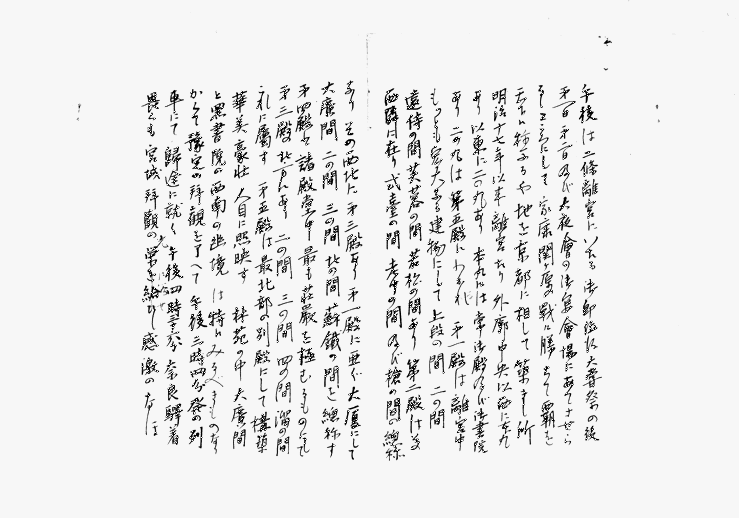 午後は二條離宮にいたる 御即位大嘗祭の後
第一日 第二日及び大夜會の御宴會場にあてさせら
そところにして 家康関ヶ原の戦に勝ちて 覇を
天下に 称ふるや 地を京都に相して 築きし所
明治十七年以来 離宮たり 外廓中央以西に本丸
あり 以東に二の丸あり 本丸には 常御殿及び御書院
あり 二の丸は 第五殿にわかれ 第一殿は離宮中
もっとも宏大なる建物にして 上段の間 二の間
遠侍の間 芙蓉の間 若松の間あり 第二殿はその
西隣に在り 式臺の間 老中の間及び槍の間の總称
あり その西北に 第三殿あり 第一殿に亜ぐ大厦にして
大廣間 二の間 三の間 北の間 蘇鐵の間を總称す
第四殿は諸殿堂中 最も荘厳を極むるものにて
第三殿北にあり 二の間 三の間 四の間 溜の間
これに屬す 第五殿は最北部の別殿にして 構築
華美豪壮 人目に照映す 林苑の中 大廣間
と黒書院の西南の幽境は 特にみるべきものなり
かくて 豫定の拝観を了へて 午後三時四分發の列
車にて 帰途に就く 午後四時 奈良驛着
畏くも宮城拝観の栄を給ひし感激の